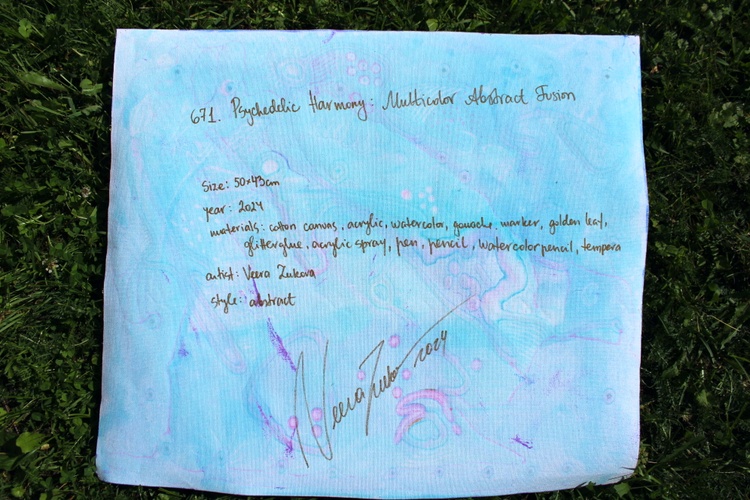 671. Psychedelic Harmony: Multicolor Abstract Fusion
Size: 50x43cm
year: 2024
materials: cotton canvas, acrylic, watercolor, gouache, marker, golden leaf,
glitterglue, acrylic spray, pen, pencil, watercolor pencil, tempera
artist: Veera Zukova
style: abstract
Veera Zukova 2024